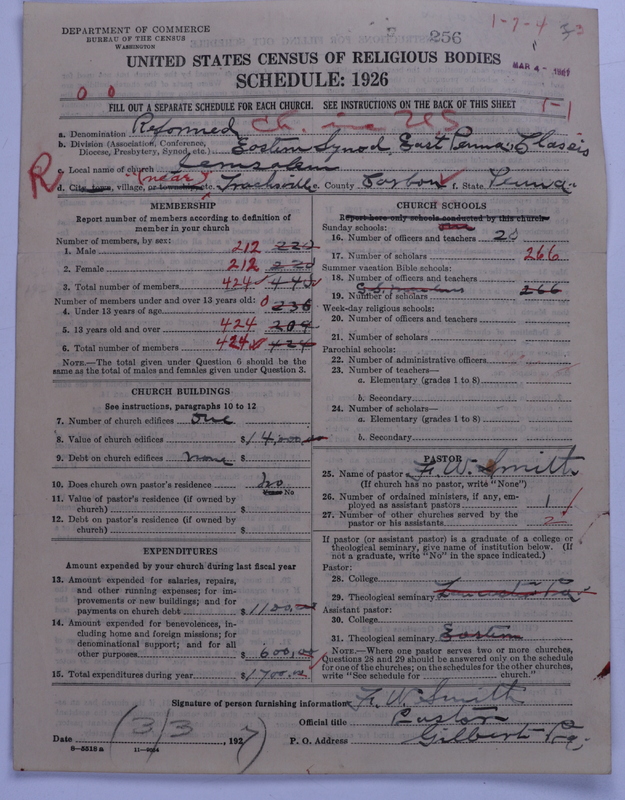 1-7-4
DEPARTMENT OF COMMERCE
BUREAU OF THE CENSUS
WASHINGTON
256
UNITED STATES CENSUS OF RELIGIOUS BODIES
SCHEDULE: 1926
MAR 4 - 1927
0 0
FILL OUT A SEPARATE SCHEDULE FOR EACH CHURCH. SEE INSTRUCTIONS ON THE BACK OF THIS SHEET
1-1
a. Denomination Reformed Ch. in US
b. Division (Association, Conference, Diocese, Presbytery, Synod, etc.) Eastern Synod, East Penna, Classis
c. Local name of church Jerusalem
R
d. City, town, village, or township, etc. (near) Trachsville e. County Carbon f. State Penna.
MEMBERSHIP
Report number of members according to definition of member in your church
Number of members, by sex:
1. Male 212 220
2. Female 212 220
3. Total number of members 424 440
Number of members under and over 13 years old:
4. Under 13 years of age 0 236
5. 13 years old and over 424 204
6. Total number of members 424 424
NOTE.—The total given under Question 6 should be the same as the total of males and females given under Question 3.
CHURCH BUILDINGS
See instructions, paragraphs 10 to 12
7. Number of church edifices One
8. Value of church edifices $14,000.00
9. Debt on church edifices None $
10. Does church own pastor's residence No
No
11. Value of pastor's residence (if owned by church) $
12. Debt on pastor's residence (if owned by church) $
EXPENDITURES
Amount expended by your church during last fiscal year
13. Amount expended for salaries, repairs, and other running expenses; for improvements or new buildings; and for payments on church debt $1100.00
14. Amount expended for benevolences, including home and foreign missions; for denominational support; and for all other purposes $600.00
15. Total expenditures during year $1700.00
CHURCH SCHOOLS
Report here only schools conducted by this church
Sunday schools:
16. Number of officers and teachers 20
17. Number of scholars 266
Summer vacation Bible schools:
18. Number of officers and teachers
19. Number of scholars 266
Week-day religious schools:
20. Number of officers and teachers
21. Number of scholars
Parochial schools:
22. Number of administrative officers
23. Number of teachers—
a. Elementary (grades 1 to 8)
b. Secondary
24. Number of scholars—
a. Elementary (grades 1 to 8)
b. Secondary
PASTOR
25. Name of pastor F. W. Smith
(If church has no pastor, write "None")
26. Number of ordained ministers, if any, employed as assistant pastors 1
27. Number of other churches served by the pastor or his assistants 2
If pastor (or assistant pastor) is a graduate of a college or theological seminary, give name of institution below. (If not a graduate, write "No" in the space indicated.)
Pastor:
28. College
29. Theological seminary
Assistant pastor:
30. College
31. Theological seminary Eastern
NOTE.—Where one pastor serves two or more churches, Questions 28 and 29 should be answered only on the schedule for one of the churches; on the schedules for the other churches, write "See schedule for church."
Signature of person furnishing information F. W. Smith
Official title Pastor
Date (3/3, 1927) P. O. Address Gilbert Pa.
8-5518 a 11-9054